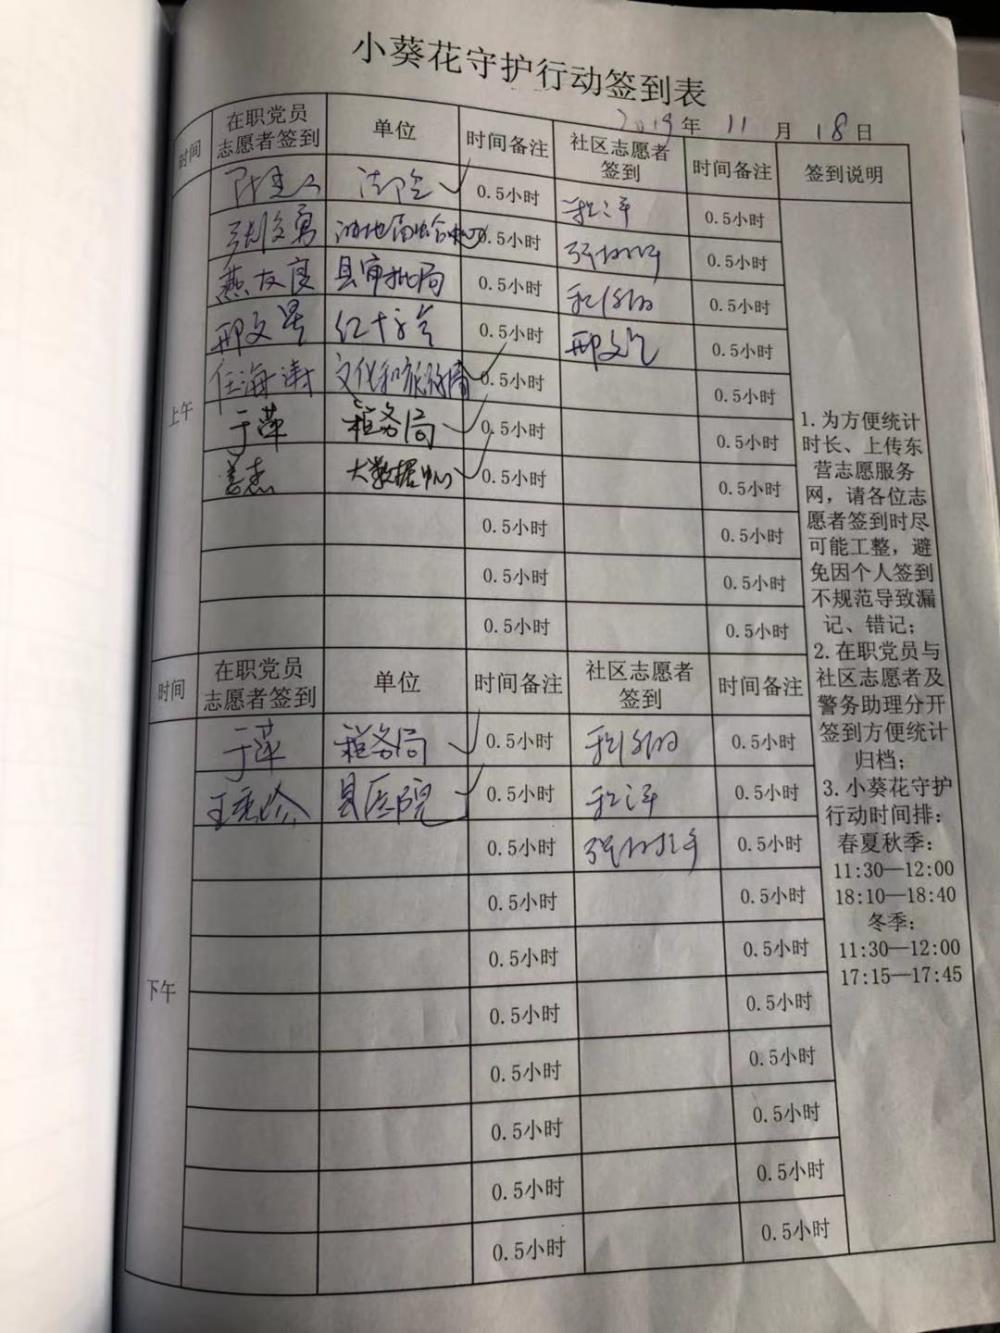 小葵花守护行动签到表
2019年 11月 18日
时间 在职党员志愿者签到 单位 时间备注 社区志愿者签到 时间备注 签到说明
上午
法院 0.5小时 0.5小时
张俊勇 0.5小时 0.5小时
燕友良 县审批局 0.5小时 0.5小时
邢文星 红十字会 0.5小时 邢文 0.5小时
任海涛 文化和旅游局 0.5小时 0.5小时
于萍 税务局 0.5小时 0.5小时
姜杰 大数据中心 0.5小时 0.5小时
0.5小时 0.5小时
0.5小时 0.5小时
0.5小时 0.5小时
时间 在职党员志愿者签到 单位 时间备注 社区志愿者签到 时间备注
下午
于萍 税务局 0.5小时 0.5小时
王 县医院 0.5小时 0.5小时
0.5小时 0.5小时
0.5小时 0.5小时
0.5小时 0.5小时
0.5小时 0.5小时
0.5小时 0.5小时
0.5小时 0.5小时
0.5小时 0.5小时
0.5小时 0.5小时
1.为方便统计
时长、上传东
营志愿服务
网，请各位志
愿者签到时尽
可能工整，避
免因个人签到
不规范导致漏
记、错记；
2.在职党员与
社区志愿者及
警务助理分开
签到方便统计
归档；
3.小葵花守护
行动时间排：
春夏秋季：
11:30—12:00
18:10—18:40
冬季：
11:30—12:00
17:15—17:45